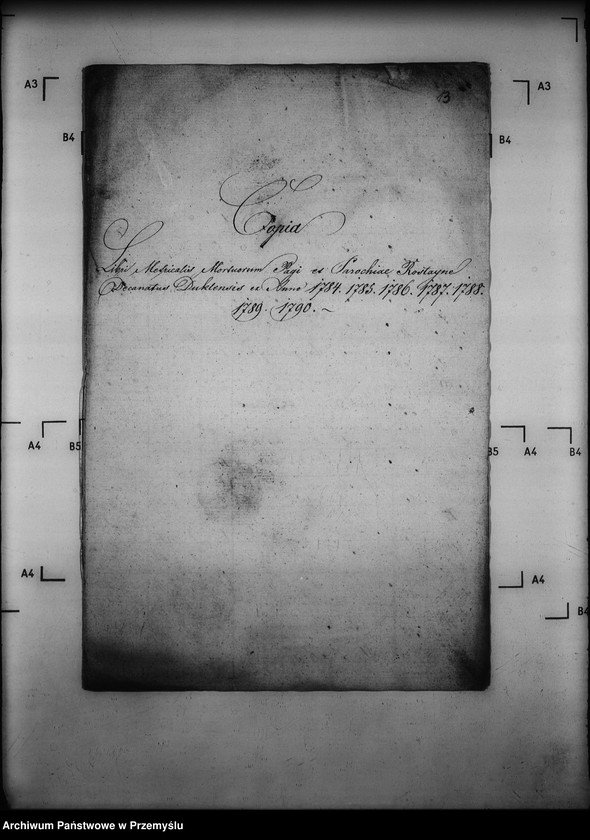 A3
A3
B4
B4
13
Copia
Libri Metricalis Mortuorum Pagi et Parochiae Rostayne
Decanatus Duklensis ex Anno 1784. 1785. 1786. 1787. 1788.
1789. 1790. ~
A4
B5
B5
A4
B4
A4
A4
B4
Archiwum Państwowe w Przemyślu